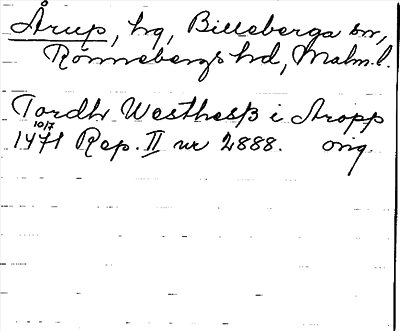 Årup, hg, Billeberga sn,
Rönnebergs hd, Malm. l.
Tordh Westhesß i Aropp
10/7
1471 Rep. II nr 2888. orig.